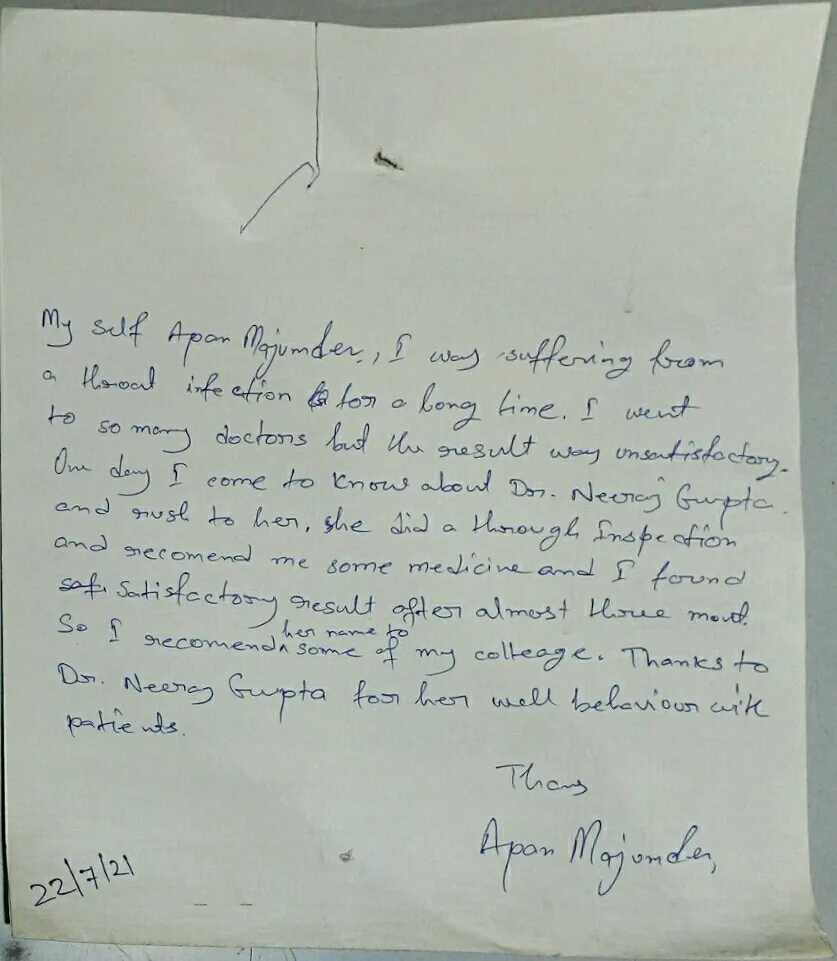 My self Apan Majumder, I was suffering from
a throat infection for a long time. I went
to so many doctors but the result way unsatisfactory.
One day I come to know about Dr. Neeraj Gupta.
and rush to her, she did a through Inspection
and recomend me some medicine and I found
satisfactory result after almost three mont.
So I recomend her name to some of my colleage. Thanks to
Dr. Neeraj Gupta for her well behaviour with
patients.
Thans
Apan Majumder,
22/7/21